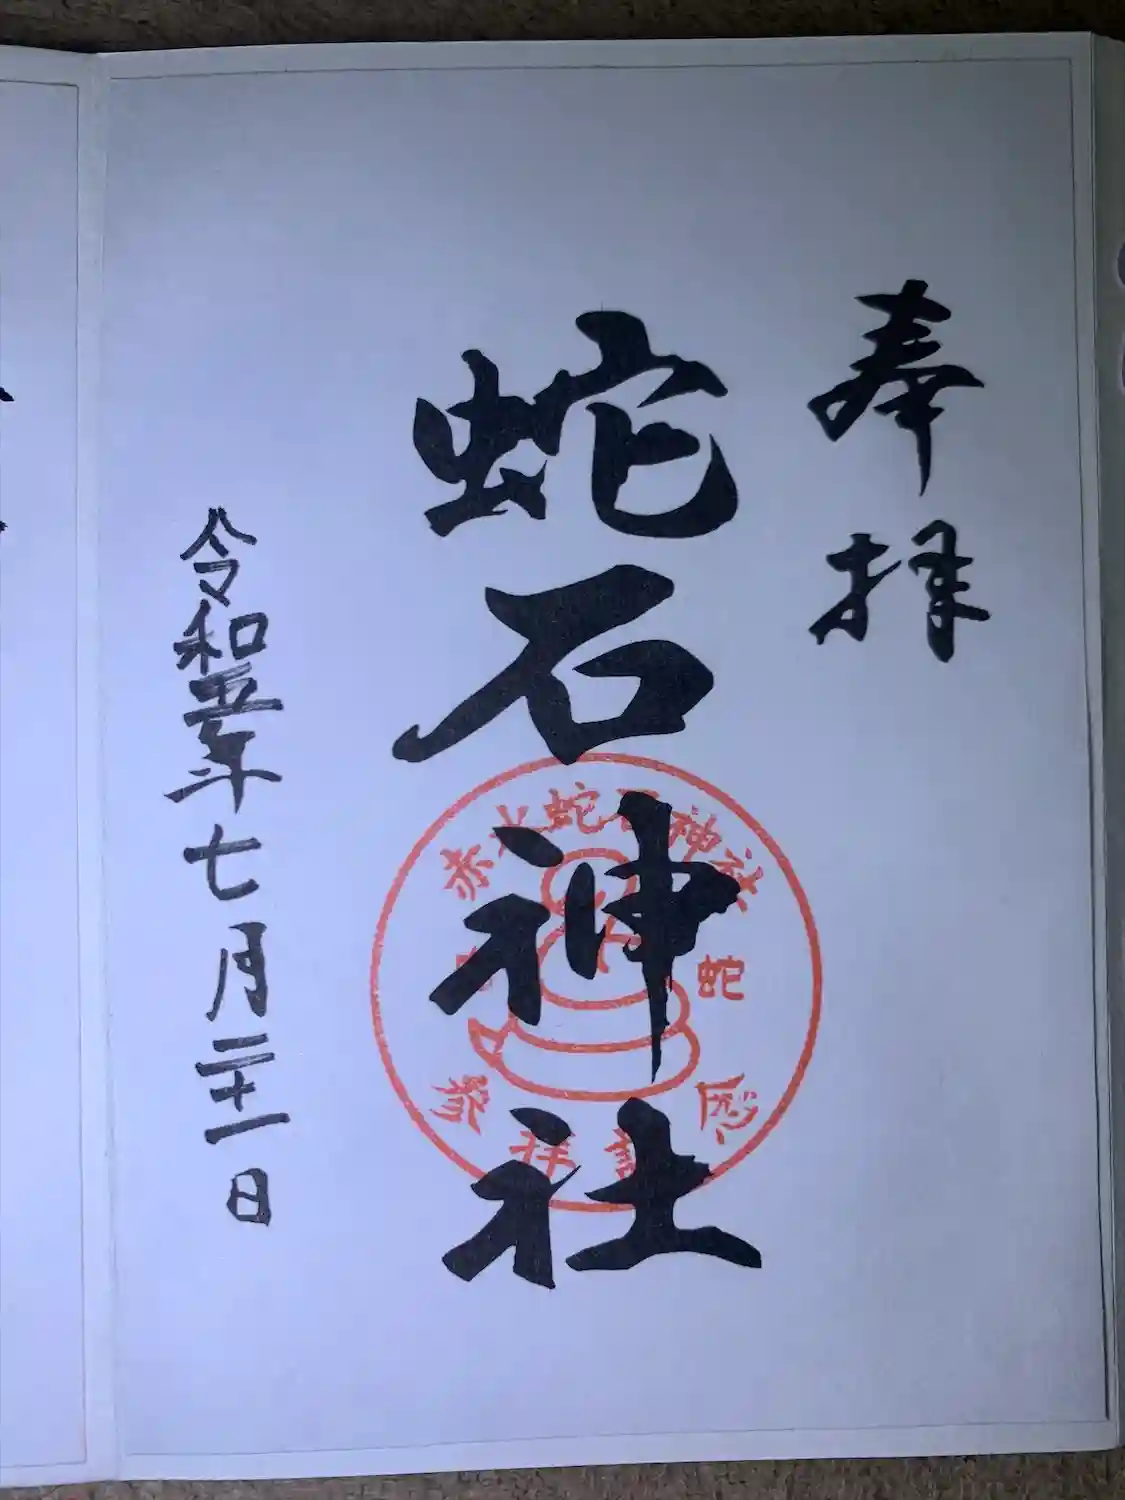 奉拝
蛇石神社
赤水蛇石神社
蛇
参拝記
令和五年七月二十一日